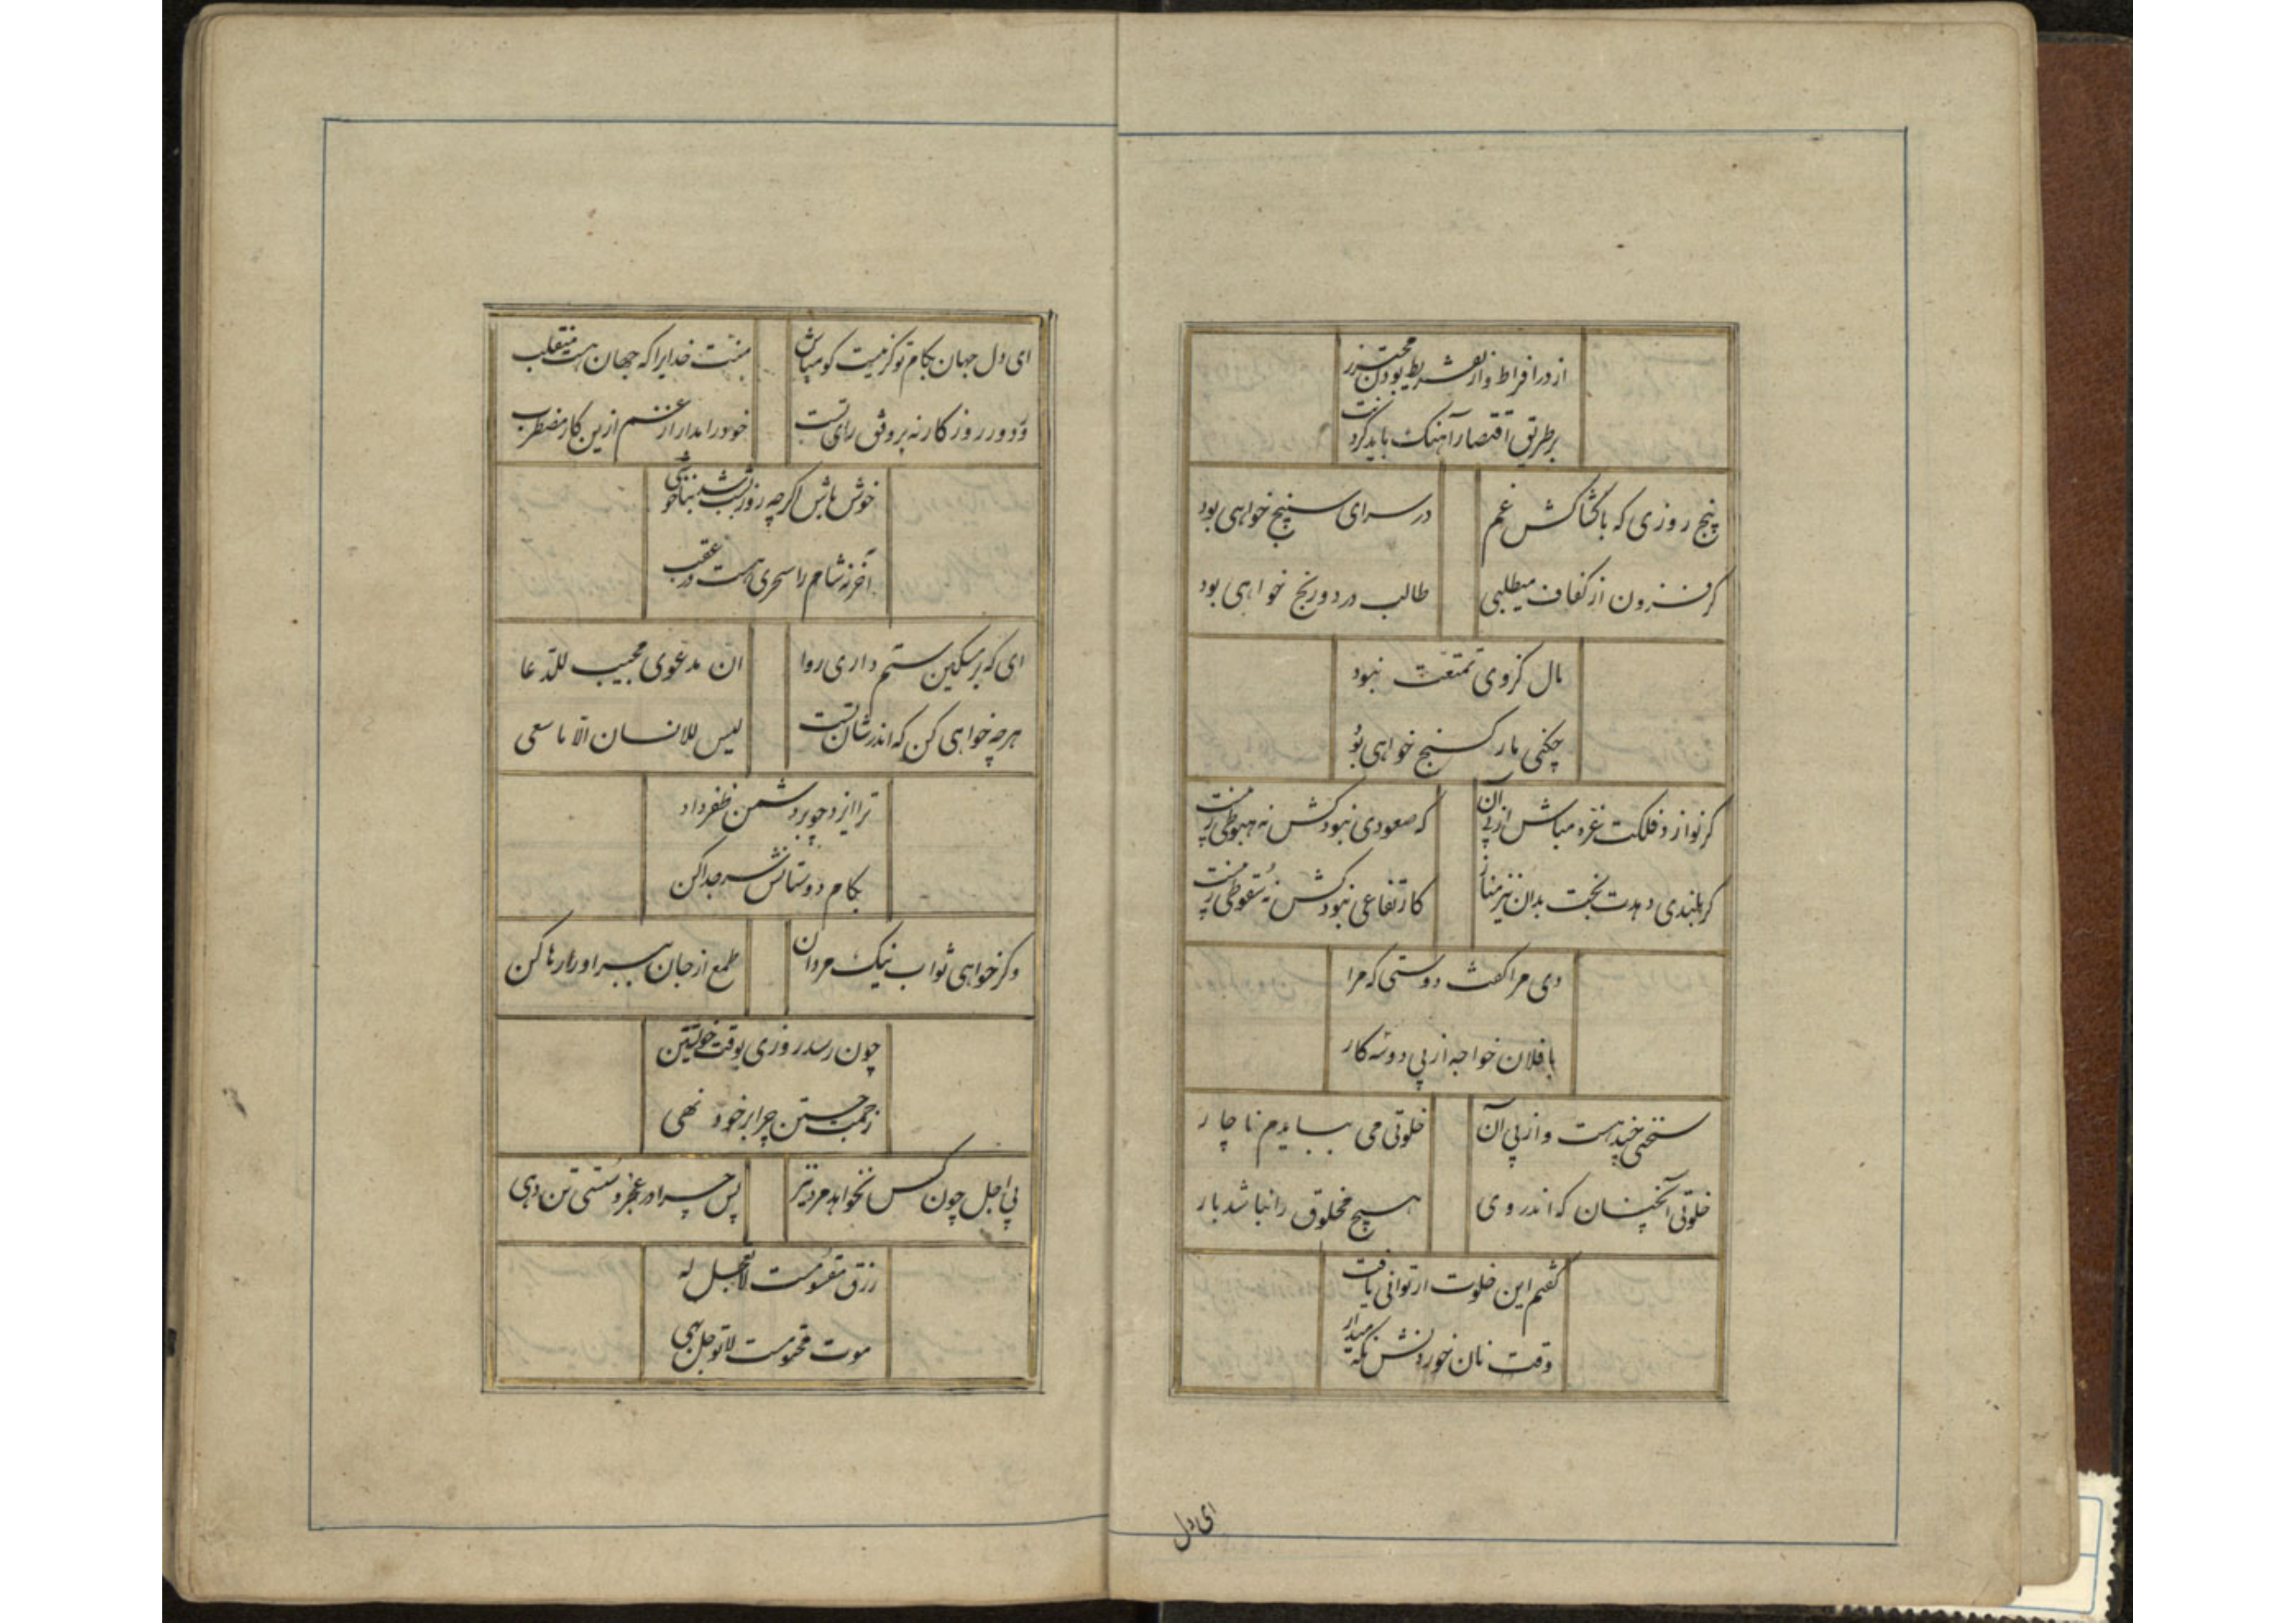 از در افراط و از تفریط بودن محترز
بر طریق اقتصار آهنگ باید کردنت
پنج روزی که با کشاکش غم
در سرای سپنج خواهی بود
کر فزون از کفاف میطلبی
طالب درد و رنج خواهی بود
مال کز وی تمتعت نبود
چکنی مار کنج خواهی بود
کر نوازد فلکت غره مباش از پی آن
که صعودی نبودکش نه هبوطی ز پیست
کر بلندی دهدت بخت بدان نیز مناز
کارتفاعی نبودکش نه سقوطی ز پیست
دی مرا کفت دوستی که مرا
با فلان خواجه از پی دو سه کار
سخنی چند هست و از پی آن
خلوتی می ببایدم ناچار
خلوتی آنچنان که اندر وی
هیچ مخلوق را نباشد بار
کفتم این خلوت ار توانی یافت
وقت نان خوردنش نکه میدار
ای دل
ای دل جهان بکام تو کر نیست کو مباش
منت خدایرا که جهان هست منقلب
ور دور روزکار نه بر وفق رای تست
خود را مدار از غم ازین کار مضطرب
خوش باش اکرچه روز
آخر نه شام را سحری هست در عقب
ای که بر مسکین ستم داری روا
ان مدعوی مجیب للدعا
هرچه خواهی کن که اندر شان تست
لیس للانسان الا ما سعی
ترا ایزد چو بر دشمن ظفر داد
بکام دوستانش سر جدا کن
وکر خواهی ثواب نیک مردان
طمع از جان ببر او را رها کن
چون رسد روزی بوقت خویشتن
زحمت جستن چرا بر خود نهی
بی اجل چون کس نخواهد مرد نیز
پس چرا در عجز و سستی تن دهی
رزق مقسومست لا تعجل له
موت محتومست لا توجل بهی